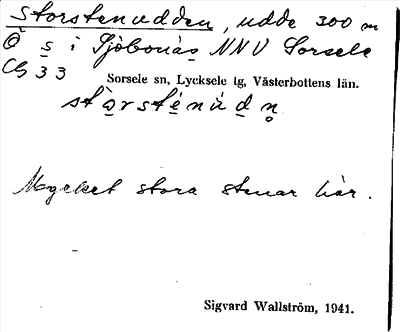 Storstenudden, udde 300 m
Ö s i Sjöbonäs NNV Sorsele
CG 33
Sorsele sn, Lycksele lg, Västerbottens län.
Mycket stora stenar här.
Sigvard Wallström, 1941.